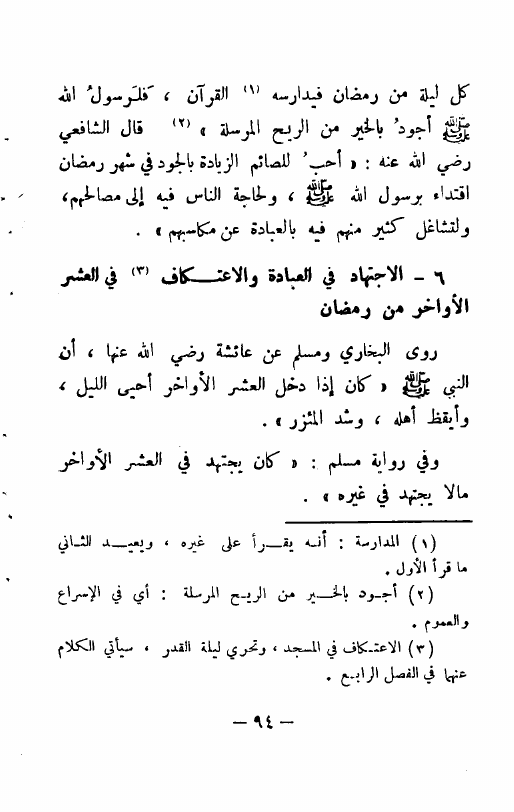 كل ليلة من رمضان فيدارسه (١) القرآن ، فلَرسولُ الله
ﷺ أجودُ بالخير من الريح المرسلة » (٢) قال الشافعي
رضي الله عنه : « أحبُ للصائم الزيادة بالجود في شهر رمضان
اقتداء برسول الله ﷺ ، ولحاجة الناس فيه إلى مصالحهم،
ولتشاغل كثير منهم فيه بالعبادة عن مكاسبهم » .
٦ – الاجتهاد في العبادة والاعتكاف (٣) في العشر
الأواخر من رمضان
روى البخاري ومسلم عن عائشة رضي الله عنها ، أن
النبي ﷺ « كان إذا دخل العشر الأواخر أحيى الليل ،
وأيقظ أهله ، وشد المئزر » .
وفي رواية مسلم : « كان يجتهد في العشر الأواخر
مالا يجتهد في غيره » .
(١) المدارسة : أنه يقرأ على غيره ، ويعيد الثاني
ما قرأ الأول .
(٢) أجود بالخير من الريح المرسلة : أي في الإسراع
والعموم .
(٣) الاعتكاف في المسجد ، وتحري ليلة القدر ، سيأتي الكلام
عنها في الفصل الرابع .
– ٩٤ –